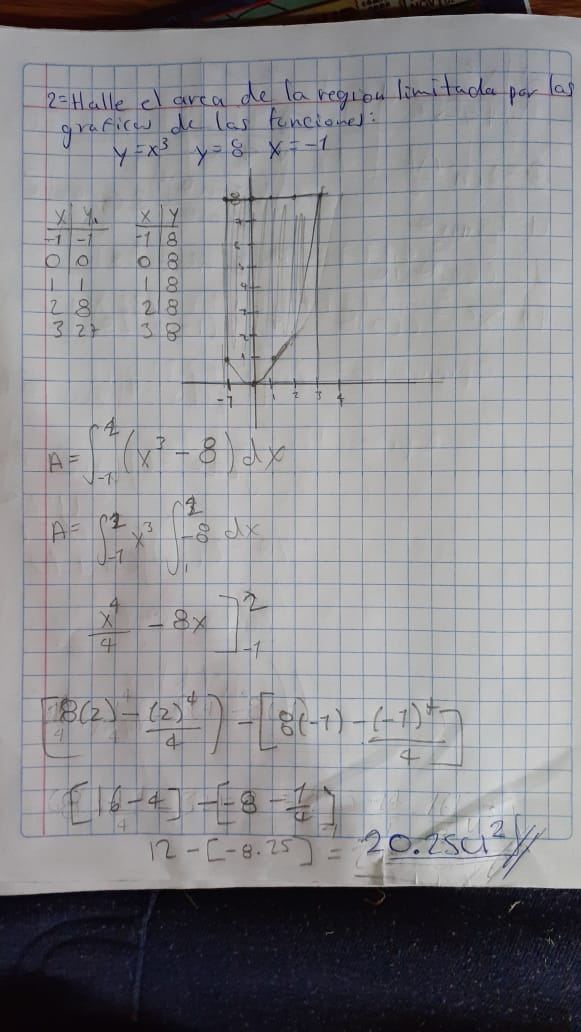 2= Halle el area de la region limitada por las
graficas de las funciones:
y=x³ y=8 x=-1
x y x y
-1 -1 -1 8
0 0 0 8
1 1 1 8
2 8 2 8
3 27 3 8
8
7
6
5
4
3
2
1
-1 1 2 3 4
A= ∫₋₁² (x³ - 8) dx
A= ∫₋₁² x³ ∫₁² -8 dx
x⁴/4 - 8x ]₋₁²
[8(2) - (2)⁴/4) - [8(-1) - (-1)⁴/4]
[16-4] - [-8 - 1/4]
12 - [-8.25] = 20.25u²//